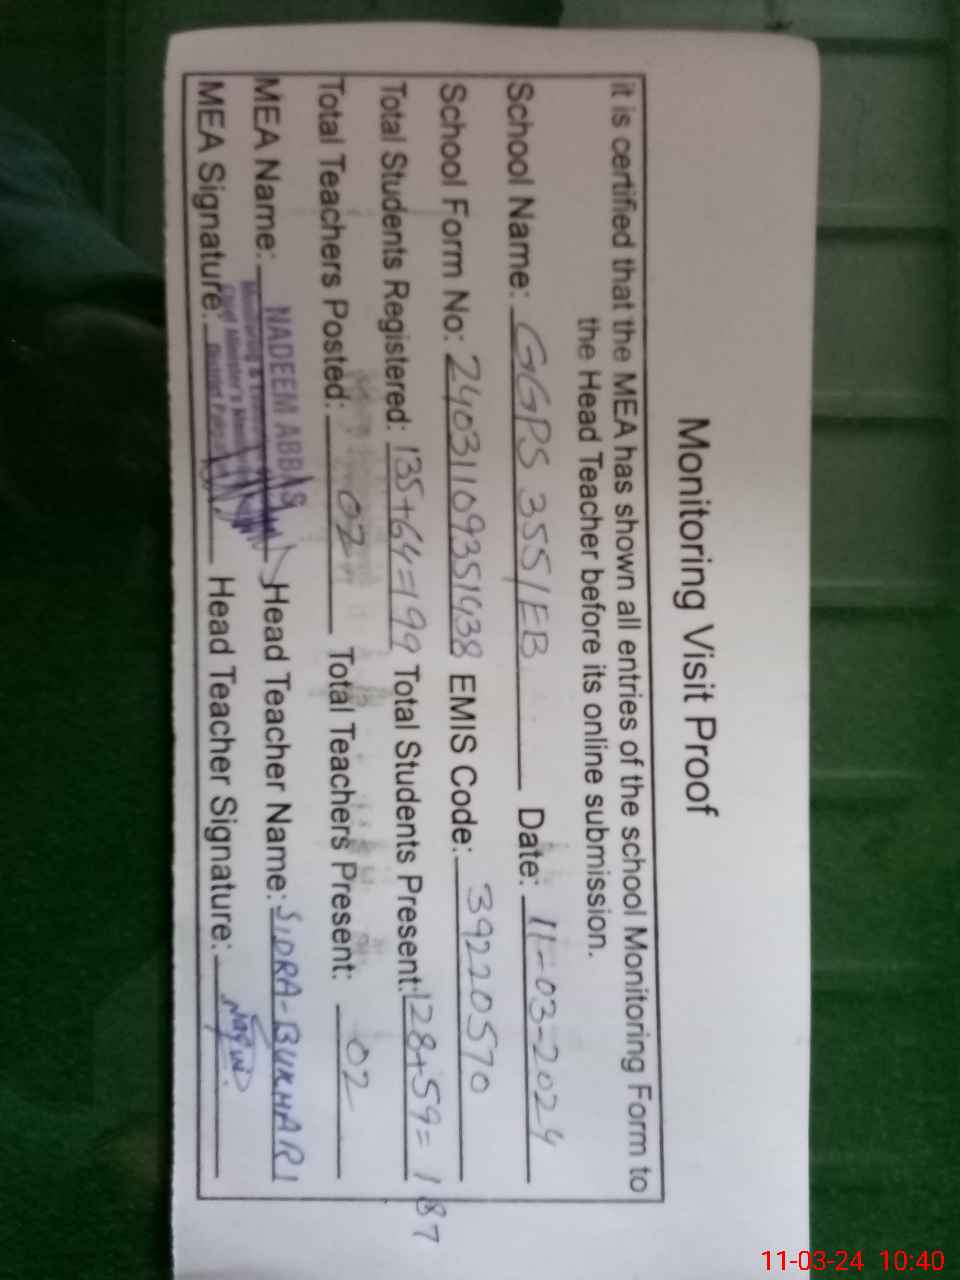 Monitoring Visit Proof
it is certified that the MEA has shown all entries of the school Monitoring Form to
the Head Teacher before its online submission.
School Name: GGPS 355/EB Date: 11-03-2024
School Form No: 24031109351938 EMIS Code: 39220570
Total Students Registered: 135+64=199 Total Students Present: 128+59=187
Total Teachers Posted: 02 Total Teachers Present: 02
MEA Name: NADEEM ABBAS Head Teacher Name: SIDRA-BUKHARI
Monitoring &
Chief Minister's
MEA Signature: District Head Teacher Signature:
11-03-24 10:40